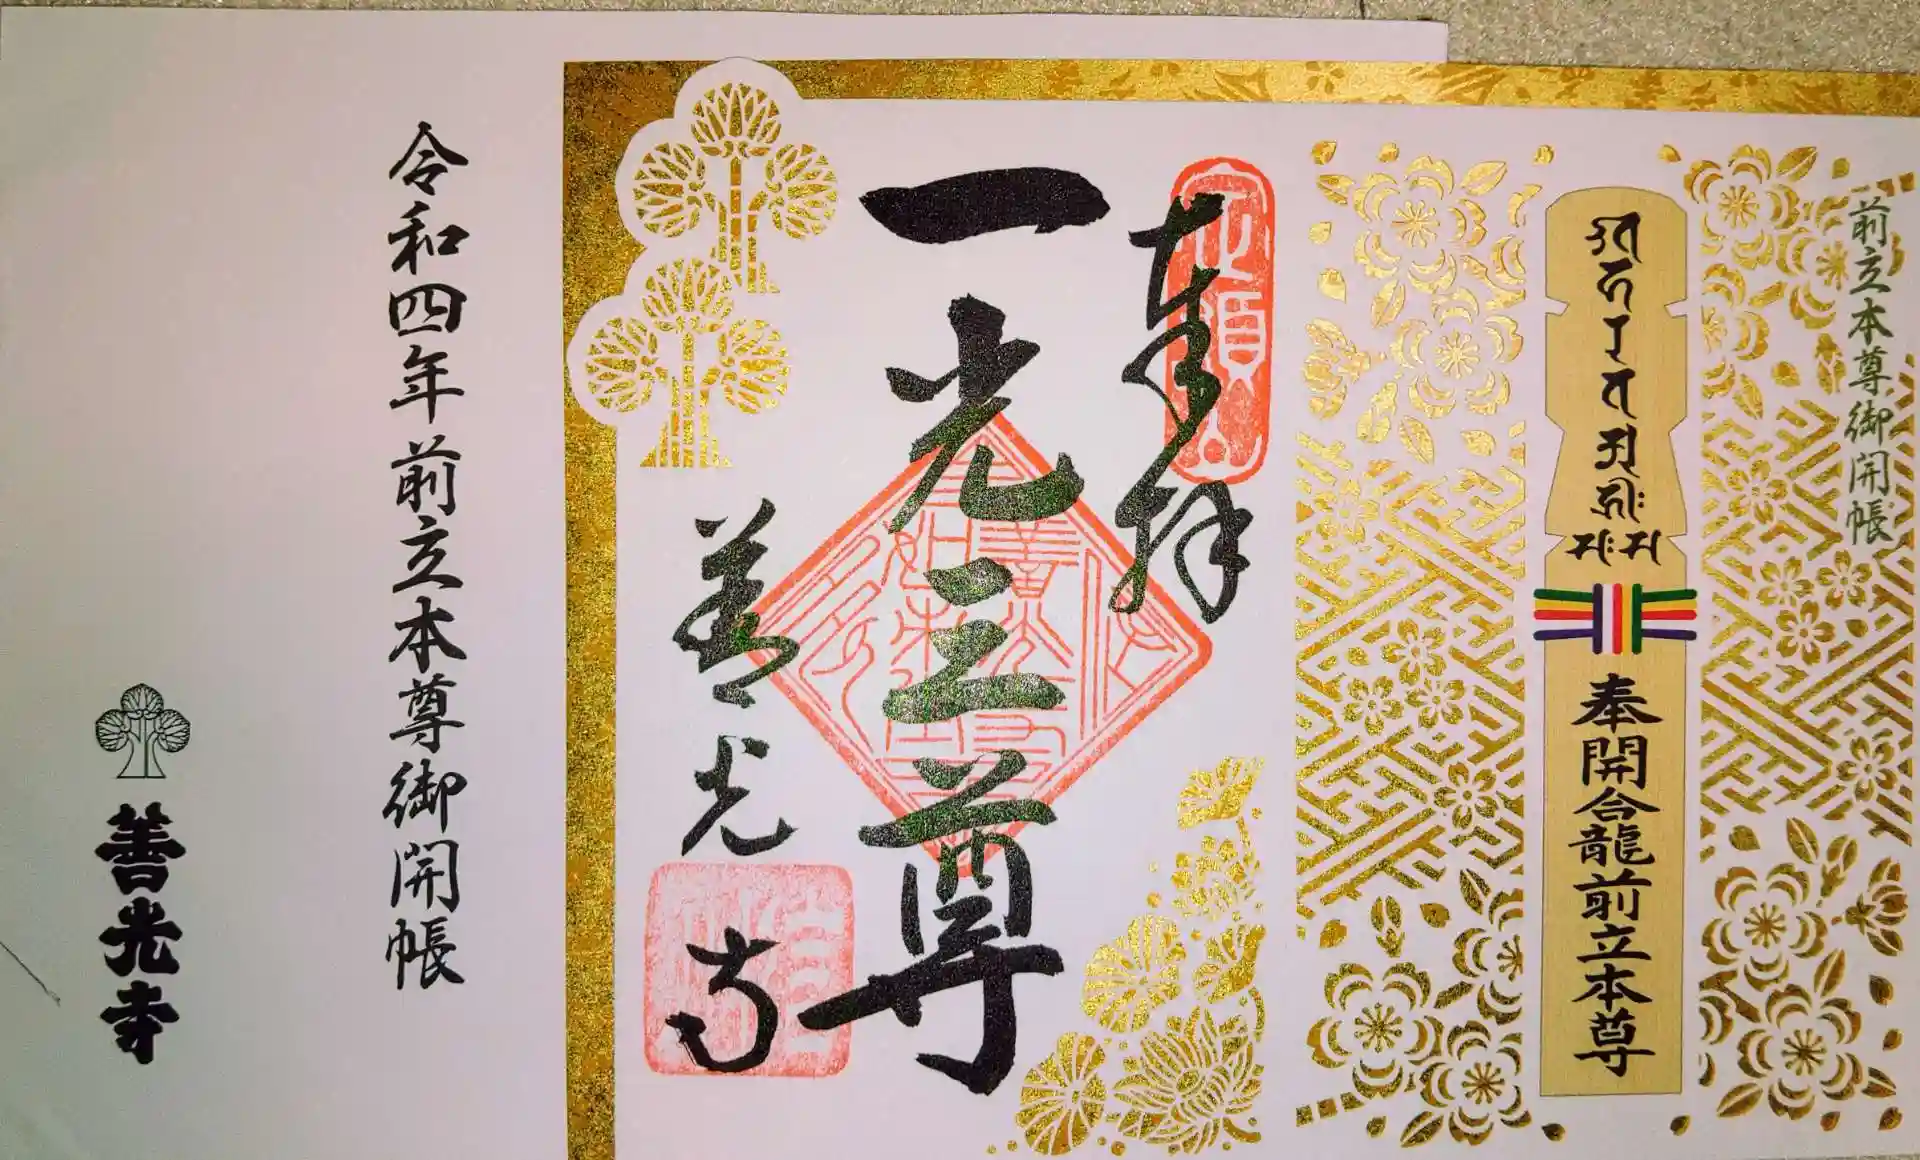 前立本尊御開帳
奉開合龍前立本尊
奉拝
一光三尊
善光寺
令和四年前立本尊御開帳
善光寺